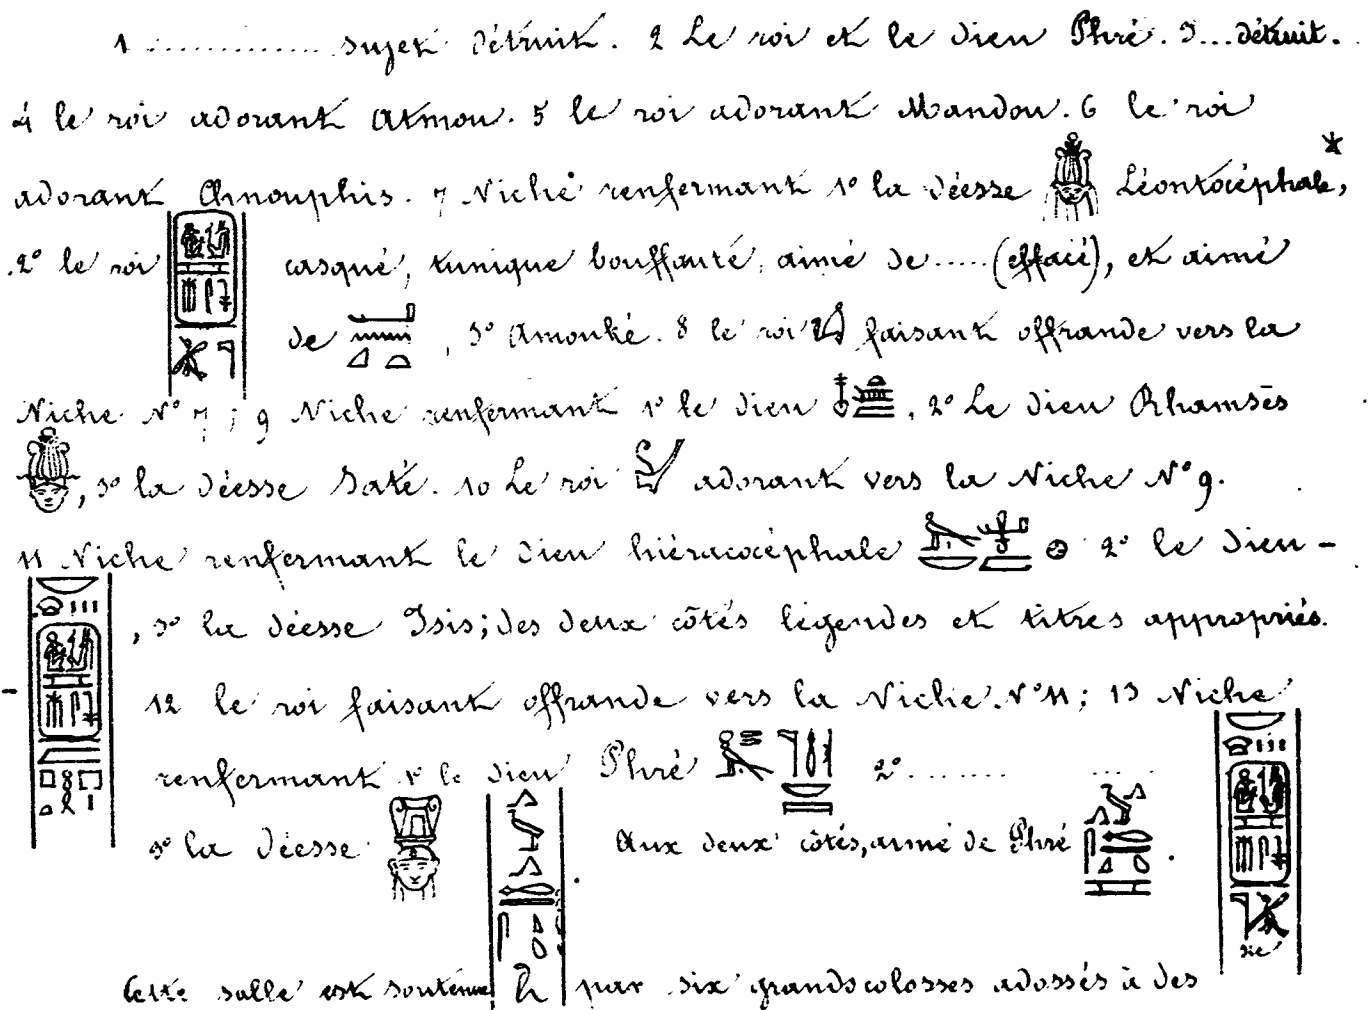 1 ............... sujet détruit. 2 Le roi et le dieu Phré. 3... détruit.
4 le roi adorant Atmou. 5 le roi adorant Mandou. 6 le roi
adorant Amouphis. 7 Niche renfermant 1° la déesse Léontocéphale*,
2° le roi casqué, tunique bouffante, aimé de ..... (effacé), et aimé
de , 3° Amouké. 8 le roi faisant offrande vers la
Niche N° 7; 9 Niche renfermant 1° le dieu , 2° Le dieu Rhamsès
, 3° la déesse Saté. 10 Le roi adorant vers la Niche N° 9.
11 Niche renfermant le dieu hiéracocéphale 2° le dieu -
- , 3° la déesse Isis; des deux côtés légendes et titres appropriés.
12 le roi faisant offrande vers la Niche N° 11; 13 Niche
renfermant 1° le dieu Phré 2° ....... .....
3° la déesse . Aux deux côtés, aimé de Phré .
sic
Cette salle est soutenue par six grands colosses adossés à des